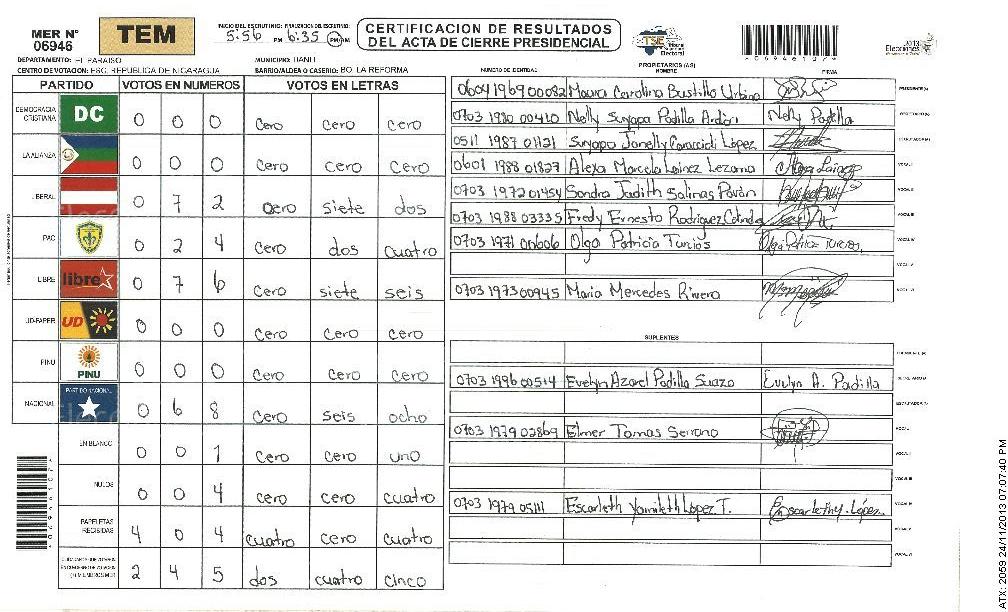 MER N° 06946
TEM
INICIO DEL ESCRUTINIO: FINALIZACION DEL ESCRUTINIO:
5:56 PM 6:35 PM/AM
CERTIFICACION DE RESULTADOS
DEL ACTA DE CIERRE PRESIDENCIAL
TSE
Tribunal Supremo Electoral
2013
Elecciones
*0694612/*
DEPARTAMENTO: EL PARAISO MUNICIPIO: DANLI
CENTRO DE VOTACION: ESC. REPUBLICA DE NICARAGUA BARRIO/ALDEA O CASERIO: BO. LA REFORMA
NUMERO DE IDENTIDAD PROPIETARIOS (AS) NOMBRE FIRMA
PARTIDO VOTOS EN NUMEROS VOTOS EN LETRAS
DEMOCRACIA CRISTIANA DC 0 0 0 cero cero cero
LA ALIANZA 0 0 0 cero cero cero
LIBERAL 0 7 2 cero siete dos
PAC 0 2 4 cero dos cuatro
LIBRE libre 0 7 6 cero siete seis
UD-FAPER UD 0 0 0 cero cero cero
PINU PINU 0 0 0 cero cero cero
NACIONAL PARTIDO NACIONAL 0 6 8 cero seis ocho
EN BLANCO 0 0 1 cero cero uno
NULOS 0 0 4 cero cero cuatro
PAPELETAS RECIBIDAS 4 0 4 cuatro cero cuatro
2 4 5 dos cuatro cinco
0604 1969 00082 Maura Carolina Bustillo Urbina
0703 1980 00410 Nelly Suyapa Padilla Ardón Nelly Padilla
0511 1987 01121 Suyapa Janelly Caraccioli López
0601 1988 01827 Alexa Marcela Lainez Lezama
0703 1972 01454 Sandra Judith Salinas Pavón
0703 1988 03335 Fredy Ernesto Rodriguez
0703 1971 00606 Olga Patricia Turcios
0703 1973 00945 Maria Mercedes Rivera
SUPLENTES
0703 1996 00514 Evelyn Azarel Padilla Suazo Evelyn A. Padilla
0703 1979 02869 Elmer Tomas Serrano
0703 1979 05111 Escarleth Yamileth López T.
ATX: 2059 24/11/2013 07:07:40 PM